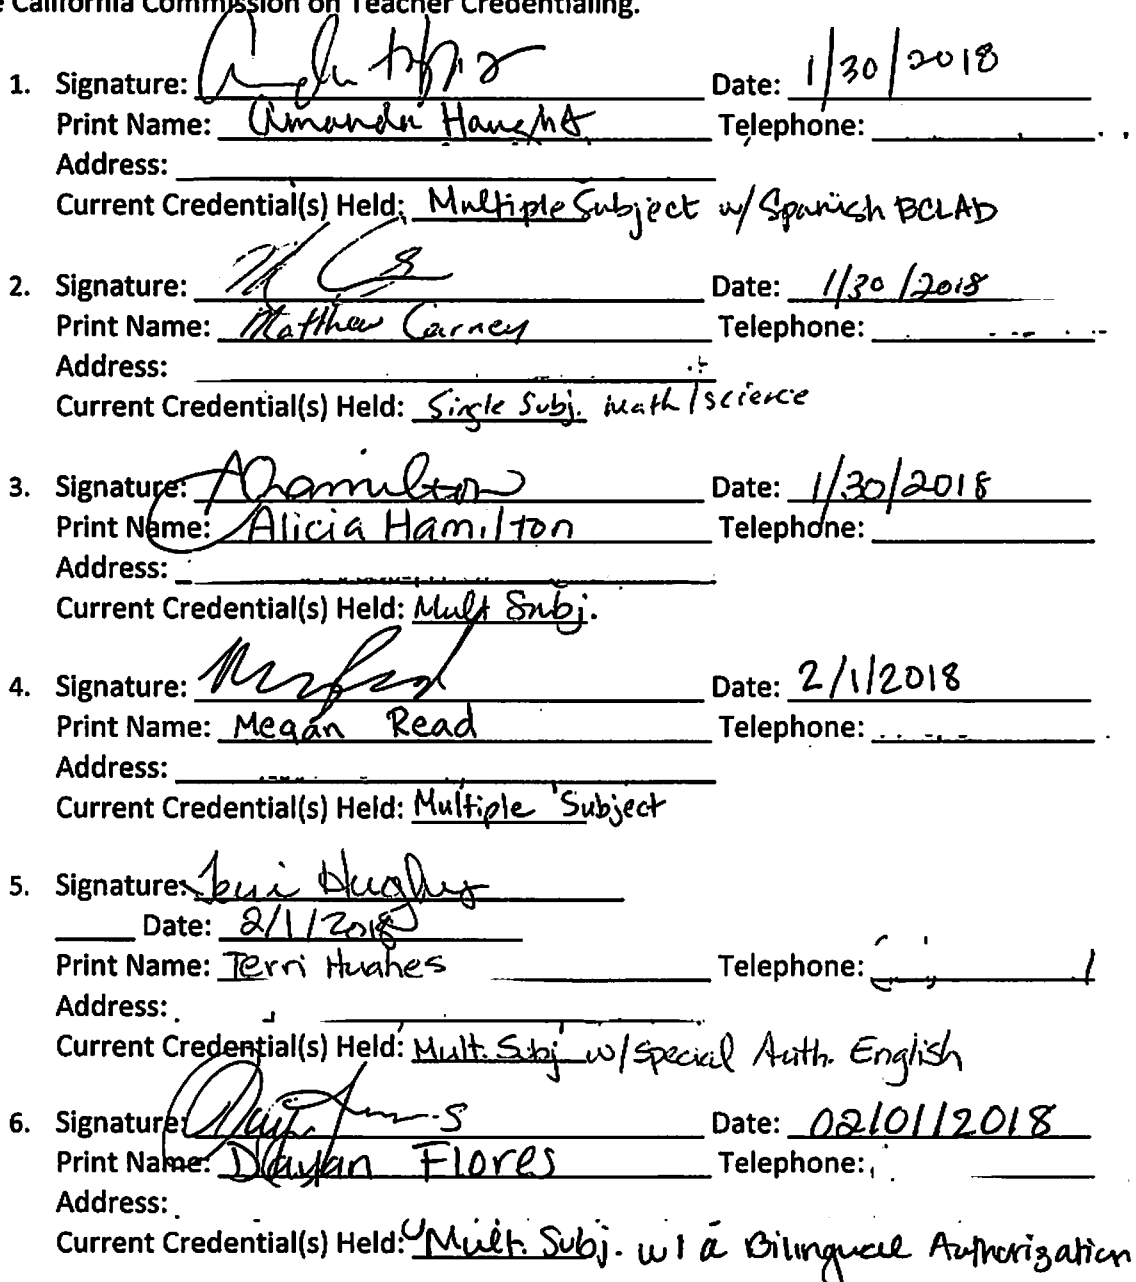 California Commission on Teacher Credentialing.
1. Signature: Date: 1/30/2018
Print Name: Amanda Haught Telephone:
Address:
Current Credential(s) Held: Multiple Subject w/ Spanish BCLAD
2. Signature: Date: 1/30/2018
Print Name: Matthew Carney Telephone:
Address:
Current Credential(s) Held: Single Subj. math/science
3. Signature: AHamilton Date: 1/30/2018
Print Name: Alicia Hamilton Telephone:
Address:
Current Credential(s) Held: Mult Subj.
4. Signature: Date: 2/1/2018
Print Name: Megan Read Telephone:
Address:
Current Credential(s) Held: Multiple Subject
5. Signature: Terri Hughes
Date: 2/1/2018
Print Name: Terri Hughes Telephone:
Address:
Current Credential(s) Held: Mult. Subj w/ Special Auth. English
6. Signature: Date: 02/01/2018
Print Name: Dayan Flores Telephone:
Address:
Current Credential(s) Held: Mult. Subj. w/ a Bilingual Authorization